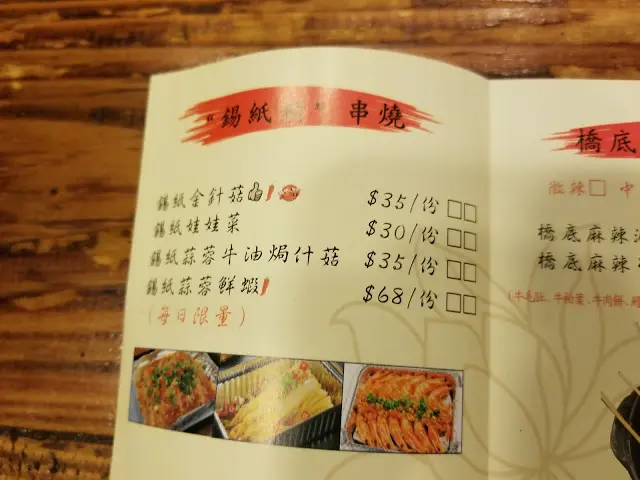 “錫紙”串燒
錫紙金針菇 $35/份 □□
錫紙娃娃菜 $30/份 □□
錫紙蒜蓉牛油焗什菇 $35/份 □□
錫紙蒜蓉鮮蝦 $68/份 □□
(每日限量)
橋底
微辣□ 中
橋底麻辣
橋底麻辣
(牛毛肚、牛柏葉、牛肉餅、